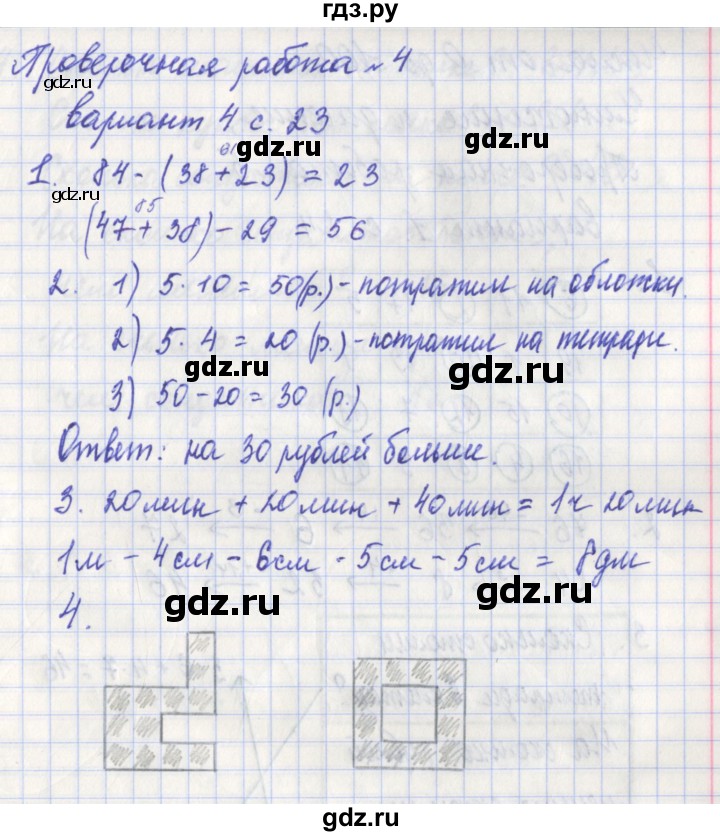 гдз.ру
Проверочная работа № 4
вариант 4 с. 23
61
1. 84 - (38 + 23) = 23
85
(47 + 38) - 29 = 56
2. 1) 5 · 10 = 50 (р.) - потратим на обложки.
2) 5 · 4 = 20 (р.) - потратим на тетради.
3) 50 - 20 = 30 (р.)
Ответ: на 30 рублей больше.
3. 20 мин + 20 мин + 40 мин = 1 ч 20 мин
1 м - 4 см - 6 см - 5 см - 5 см = 8 дм
4.
gdz.ru
gdz.ru
gdz.ru
gdz.ru
gdz.ru
gdz.ru
gdz.ru
gdz.ru
gdz.ru
gdz.ru
gdz.ru
gdz.ru
gdz.ru